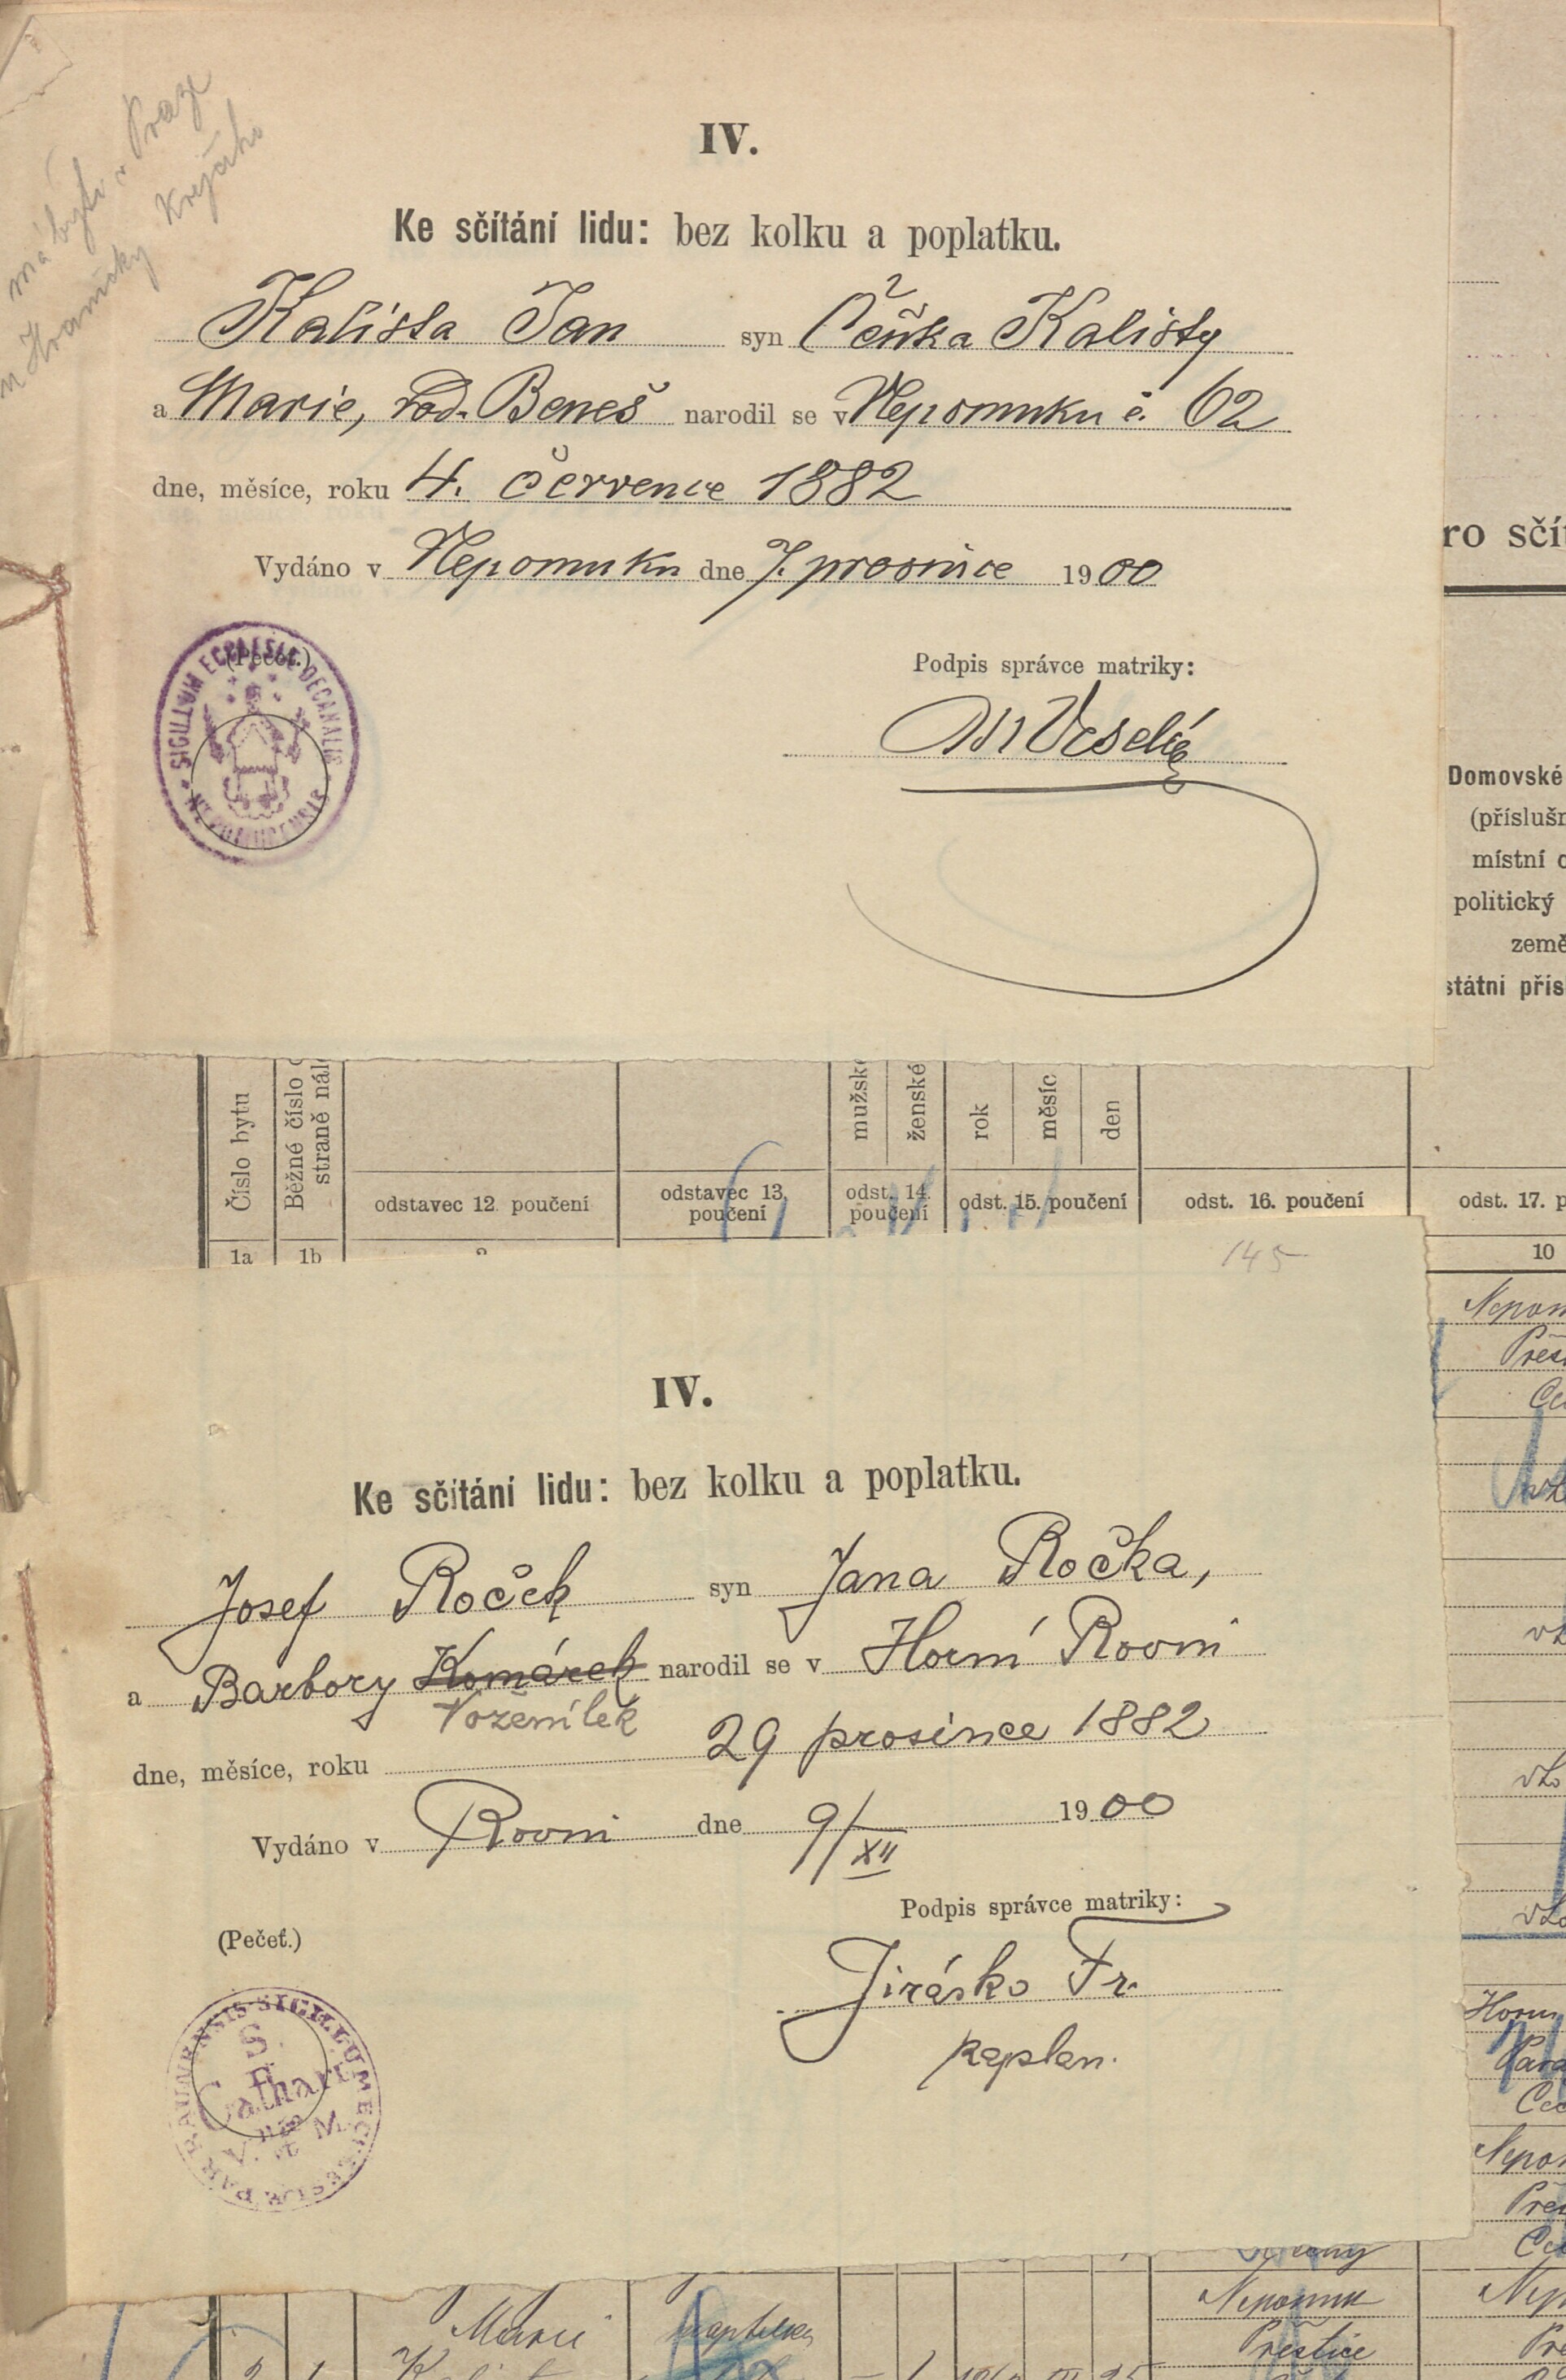 má býti v Praze
Krejčího
IV.
Ke sčítání lidu: bez kolku a poplatku.
Kalista Jan syn Čeňka Kalisty
a Marie, roz. Beneš narodil se v Nepomuku č. 62
dne, měsíce, roku 4. července 1882
Vydáno v Nepomuku dne 7. prosince 1900
(Pečeť.)
SIGILLUM ECCLESIAE DECANALIS
Podpis správce matriky:
Veselý
ro sčí
Domovské
(příslušn
místní o
politický
země
státní přís
Číslo bytu
Běžné číslo
straně nál
mužské
ženské
rok
měsíc
den
odstavec 12. poučení
odstavec 13. poučení
odst. 14. poučení
odst. 15. poučení
odst. 16. poučení
odst. 17. p
1a 1b
10
145
IV.
Ke sčítání lidu: bez kolku a poplatku.
Josef Roček syn Jana Ročka,
a Barbory Komárek narodil se v Horní Rovni
Voženílek
dne, měsíce, roku 29 prosince 1882
Vydáno v Rovni dne 9/XII 1900
Podpis správce matriky:
(Pečeť.)
Jirásko Fr.
kaplan.
SIGILLUM ECCLESIAE PAR
S. Cathari
nae
V. et M.
Marie
Nepomuk
Přeštice